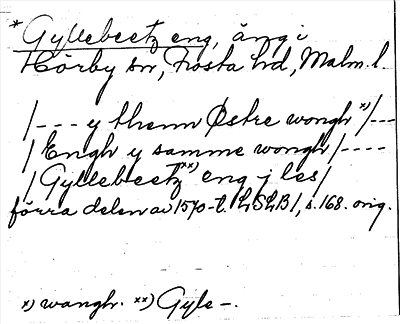 * Gyllebeetz eng, äng i
Hörby sn, Frosta hd, Malm. l.
/--- y thenn Østre wongh x)/---
/Engh y samme wongh/----
/Gyllebeetz xx) eng j les/
förra delen av 1570-t. LSLB1, s. 168. orig.
x) wangh. xx) Gyle -.